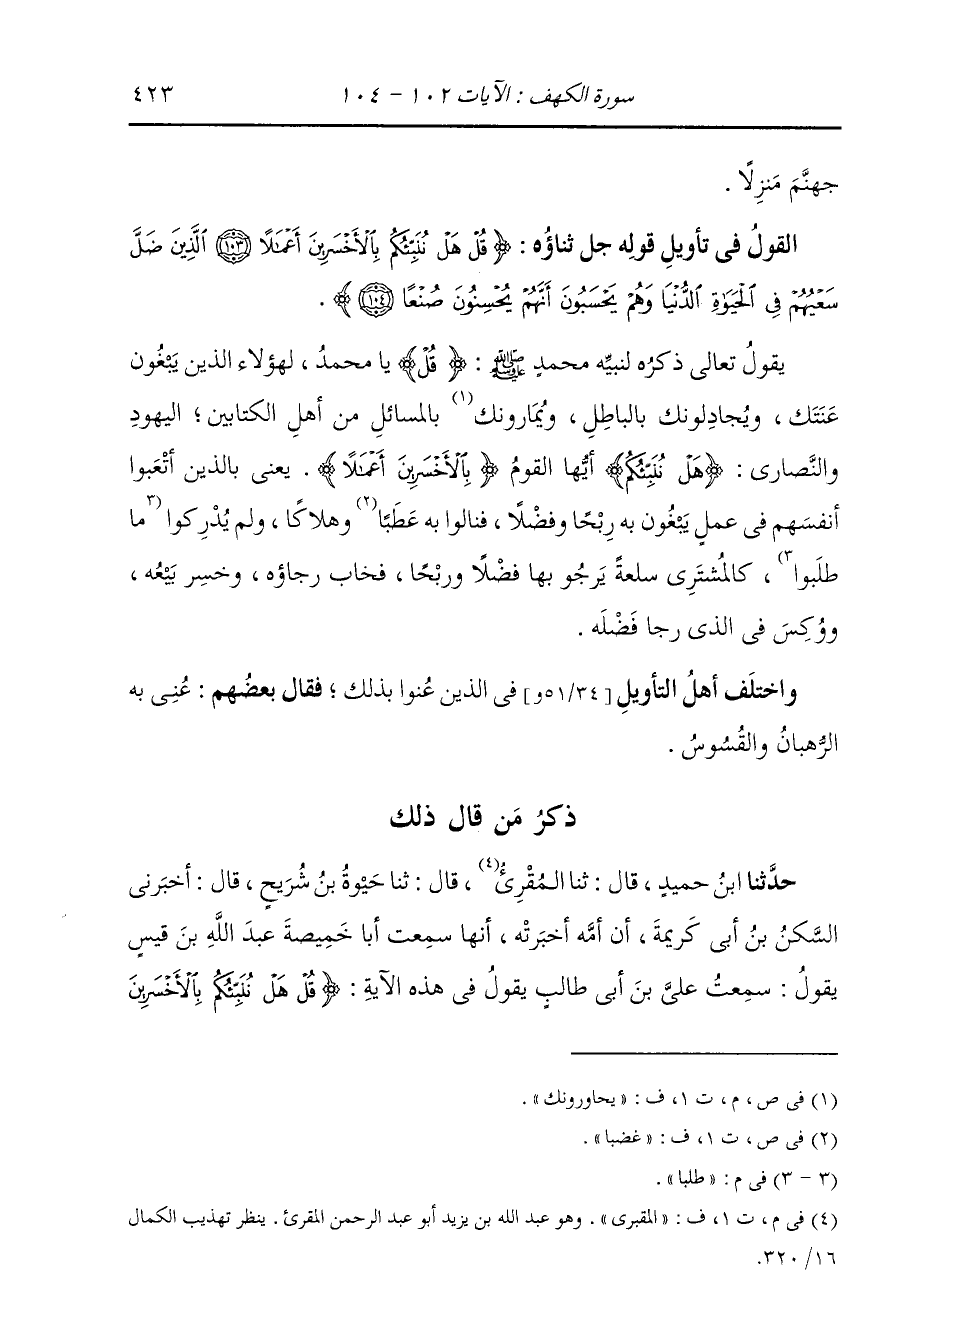 سورة الكهف : الآيات ١٠٢ - ١٠٤ ٤٢٣
جهنَّمَ مَنزِلًا .
القولُ فى تأويلِ قولِه جل ثناؤُه : ﴿ قُلْ هَلْ نُنَبِّئُكُم بِٱلْأَخْسَرِينَ أَعْمَٰلًا ١٠٣ ٱلَّذِينَ ضَلَّ
سَعْيُهُمْ فِى ٱلْحَيَوٰةِ ٱلدُّنْيَا وَهُمْ يَحْسَبُونَ أَنَّهُمْ يُحْسِنُونَ صُنْعًا ١٠٤ ﴾ .
يقولُ تعالى ذكرُه لنبيِّه محمدٍ ﷺ : ﴿ قُلْ ﴾ يا محمدُ ، لهؤلاء الذين يَبْغُون
عَنَتَك ، ويُجادِلونك بالباطِلِ ، ويُمَارونك(١) بالمسائلِ من أهلِ الكتابين ؛ اليهودِ
والنَّصارى : ﴿هَلْ نُنَبِّئُكُم﴾ أيُّها القومُ ﴿ بِٱلْأَخْسَرِينَ أَعْمَٰلًا ﴾ . يعنى بالذين أتْعَبوا
أنفسَهم فى عملٍ يَبْغُون به رِبْحًا وفضْلًا ، فنالوا به عَطَبًا(٢) وهلاكًا ، ولم يُدْرِكوا (٣ما
طلَبوا٣) ، كالمُشترِى سلعةً يَرجُو بها فضْلًا وربْحًا ، فخاب رجاؤه ، وخسِر بَيْعُه ،
ووُكِسَ فى الذى رجا فَضْلَه .
واختلَف أهلُ التأويلِ [ ٥١/٣٤و] فى الذين عُنوا بذلك ؛ فقال بعضُهم : عُنِى به
الرُّهبانُ والقُسُوسُ .
ذكرُ مَن قال ذلك
حدَّثنا ابنُ حميدٍ ، قال : ثنا المُقْرِئُ(٤) ، قال : ثنا حَيْوةُ بنُ شُرَيحٍ ، قال : أخبَرنى
السَّكنُ بنُ أبى كَرِيمةَ ، أن أمَّه أخبَرتْه ، أنها سمِعت أبا خَمِيصةَ عبدَ اللَّهِ بنَ قيسٍ
يقولُ : سمِعتُ علىَّ بنَ أبى طالبٍ يقولُ فى هذه الآيةِ : ﴿ قُلْ هَلْ نُنَبِّئُكُم بِٱلْأَخْسَرِينَ
(١) فى ص ، م ، ت ١ ، ف : « يحاورونك » .
(٢) فى ص ، ت ١ ، ف : « غضبا » .
(٣ - ٣) فى م : « طلبا » .
(٤) فى م ، ت ١ ، ف : « المقبرى » . وهو عبد الله بن يزيد أبو عبد الرحمن المقرئ . ينظر تهذيب الكمال
١٦/ ٣٢٠.